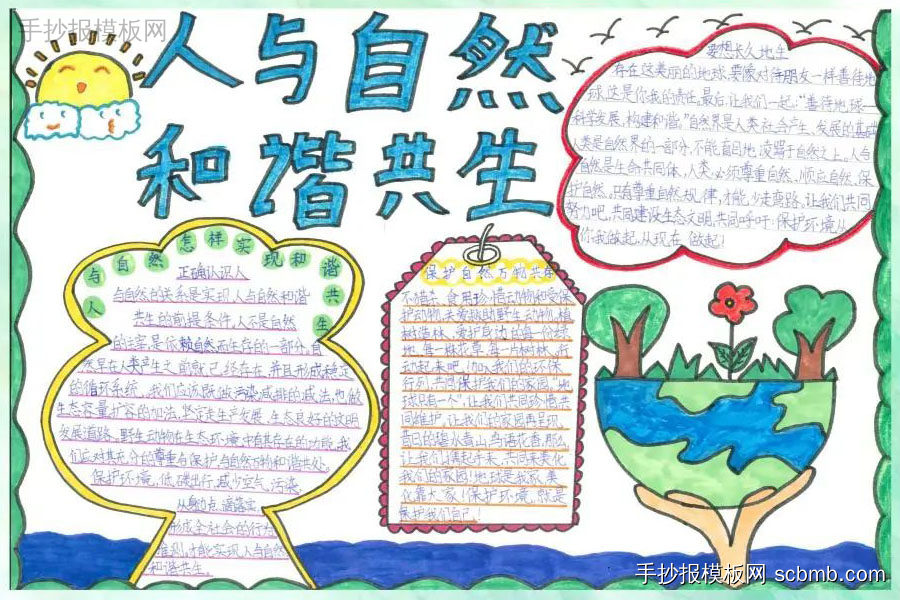 手抄报模板网
人与自然
和谐共生
要想长久地生
存在这美丽的地球,要像对待朋友一样善待地
球,这是你我的责任,最后,让我们一起:“善待地球—
科学发展,构建和谐。”自然界是人类社会产生、发展的基础
人类是自然界的一部分,不能盲目地凌驾于自然之上。人与
自然是生命共同体,人类必须尊重自然、顺应自然、保
护自然。只有尊重自然规律,才能少走弯路。让我们共同
努力吧,共同建设生态文明,共同呼吁:保护环境从
你我做起,从现在做起!
人与自然怎样实现和谐共生
正确认识人
与自然的关系是实现人与自然和谐
共生的前提条件,人不是自然
的主宰,是依赖自然而生存的一部分,自
然早在人类产生之前就已经存在,并且形成稳定
的循环系统。我们应该既做污染减排的减法,也做
生态容量扩容的加法,坚定走生产发展、生态良好的文明
发展道路。野生动物在生态环境中有其存在的功能,我
们应对其充分的尊重有保护,与自然万物和谐共处。
保护环境,低碳出行,减少空气污染,
从身边点滴落实
形成全社会的行为
准则,才能实现人与自然
和谐共生。
保护自然万物共存
不猎杀、食用珍惜动物和受保
护动物,关爱救助野生动物,植
树造林,爱护身边的每一份绿
地,每一株花草,每一片树林,行
动起来吧,加入我们的环保
行列,共同保护我们的家园,“地
球只有一个”,让我们共同珍惜共
同维护,让我们的家园再呈现
昔日的绿水青山,鸟语花香,那么,
让我们携起手来,共同来美化
我们的家园!地球是我家,美
化靠大家!保护环境,就是
保护我们自己!
手抄报模板网 scbmb.com